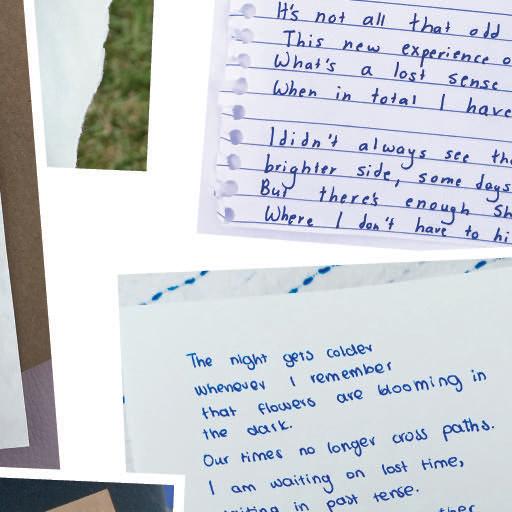 It's not all that odd
This new experience
What's a lost sense
When in total I have
I didn't always see
brighter side, some days
But there's enough
Where I don't have to
The night gets colder
whenever I remember
that flowers are blooming in
the dark.
Our times no longer cross paths.
I am waiting on lost time,
in past tense.